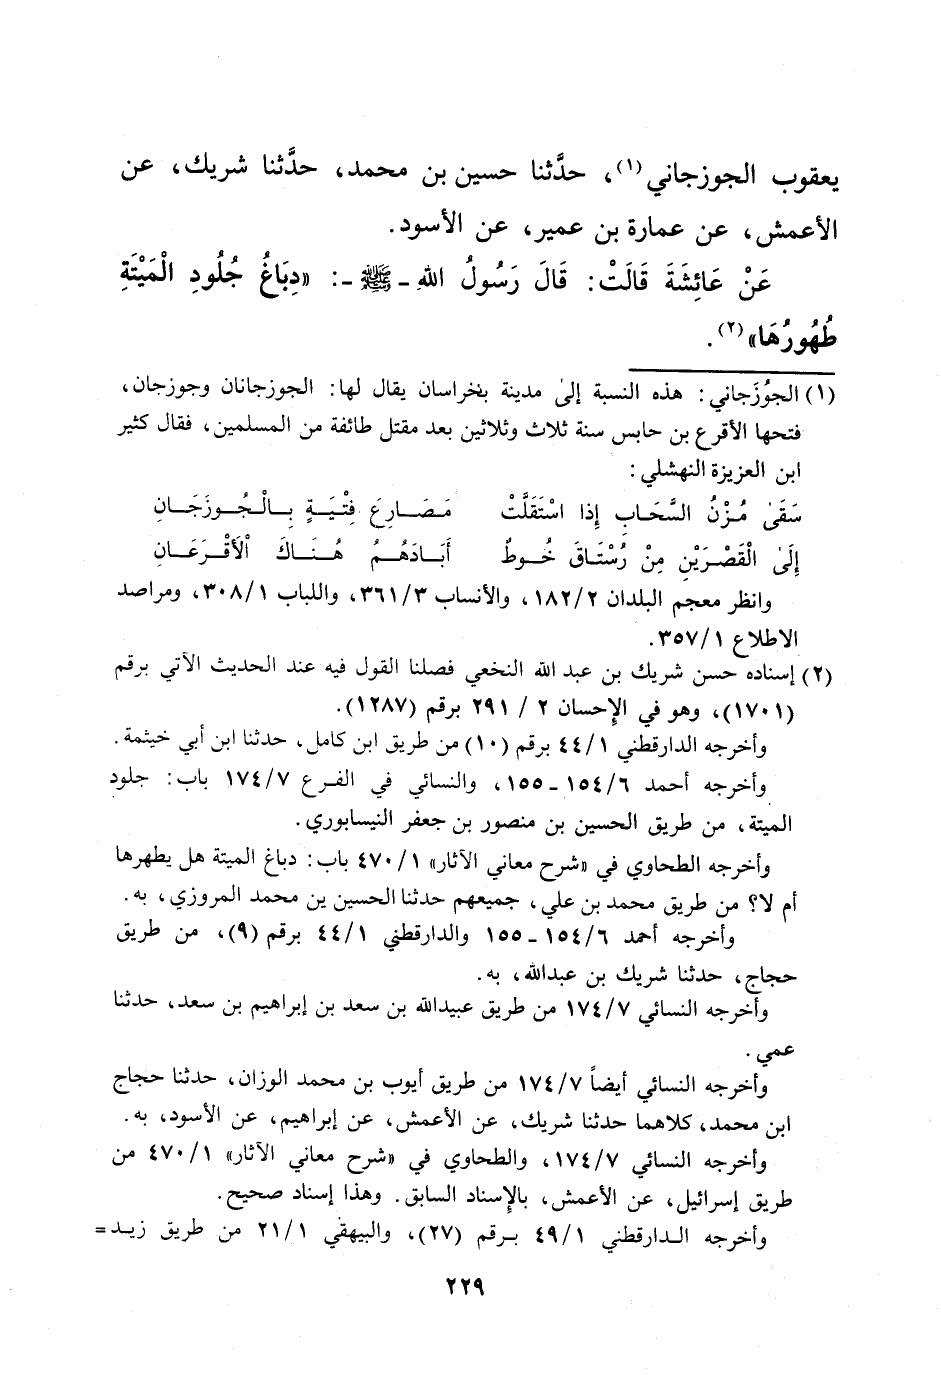 يعقوب الجوزجاني(١)، حدَّثنا حسين بن محمد، حدَّثنا شريك، عن
الأعمش، عن عمارة بن عمير، عن الأسود.
عَنْ عَائِشَةَ قَالَتْ: قَالَ رَسُولُ اللهِ - ﷺ -: «دِبَاغُ جُلُودِ الْمَيْتَةِ
طُهُورُهَا»(٢).
(١) الجوُزَجاني: هذه النسبة إلىٰ مدينة بخراسان يقال لها: الجوزجانان وجوزجان،
فتحها الأقرع بن حابس سنة ثلاث وثلاثين بعد مقتل طائفة من المسلمين، فقال كثير
ابن العزيزة النهشلي:
سَقَىٰ مُزْنُ السَّحَابِ إِذا اسْتَقَلَّتْ مَصَارِعَ فِتْيَةٍ بِالْجُوزَجَانِ
إِلَىٰ الْقَصْرَيْنِ مِنْ رُسْتَاقَ خُوطٌ أَبَادَهُمُ هُنَاكَ الْأَقْرَعَانِ
وانظر معجم البلدان ١٨٢/٢، والأنساب ٣٦١/٣، واللباب ٣٠٨/١، ومراصد
الاطلاع ٣٥٧/١.
(٢) إسناده حسن شريك بن عبد الله النخعي فصلنا القول فيه عند الحديث الآتي برقم
(١٧٠١)، وهو في الإحسان ٢ / ٢٩١ برقم (١٢٨٧).
وأخرجه الدارقطني ٤٤/١ برقم (١٠) من طريق ابن كامل، حدثنا ابن أبي خيثمة.
وأخرجه أحمد ١٥٤/٦ - ١٥٥، والنسائي في الفرع ١٧٤/٧ باب: جلود
الميتة، من طريق الحسين بن منصور بن جعفر النيسابوري.
وأخرجه الطحاوي في «شرح معاني الآثار» ٤٧٠/١ باب: دباغ الميتة هل يطهرها
أم لا؟ من طريق محمد بن علي، جميعهم حدثنا الحسين بن محمد المروزي، به.
وأخرجه أحمد ١٥٤/٦ - ١٥٥ والدارقطني ٤٤/١ برقم (٩)، من طريق
حجاج، حدثنا شريك بن عبدالله، به.
وأخرجه النسائي ١٧٤/٧ من طريق عبيدالله بن سعد بن إبراهيم بن سعد، حدثنا
عمي.
وأخرجه النسائي أيضاً ١٧٤/٧ من طريق أيوب بن محمد الوزان، حدثنا حجاج
ابن محمد، كلاهما حدثنا شريك، عن الأعمش، عن إبراهيم، عن الأسود، به.
وأخرجه النسائي ١٧٤/٧، والطحاوي في «شرح معاني الآثار» ٤٧٠/١ من
طريق إسرائيل، عن الأعمش، بالإسناد السابق. وهذا إسناد صحيح.
وأخرجه الدارقطني ٤٩/١ برقم (٢٧)، والبيهقي ٢١/١ من طريق زيد=
٢٢٩